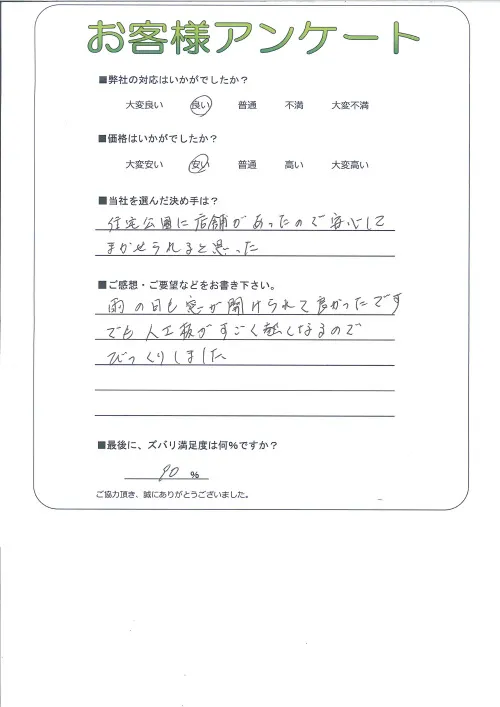 お客様アンケート
■弊社の対応はいかがでしたか?
大変良い 良い 普通 不満 大変不満
■価格はいかがでしたか?
大変安い 安い 普通 高い 大変高い
■当社を選んだ決め手は?
住宅公園に店舗があったので安心して
まかせられると思った
■ご感想・ご要望などをお書き下さい。
雨の日も窓が開けられて良かったです
でも人工板がすごく熱くなるので
びっくりしました
■最後に、ズバリ満足度は何%ですか?
90 %
ご協力頂き、誠にありがとうございました。